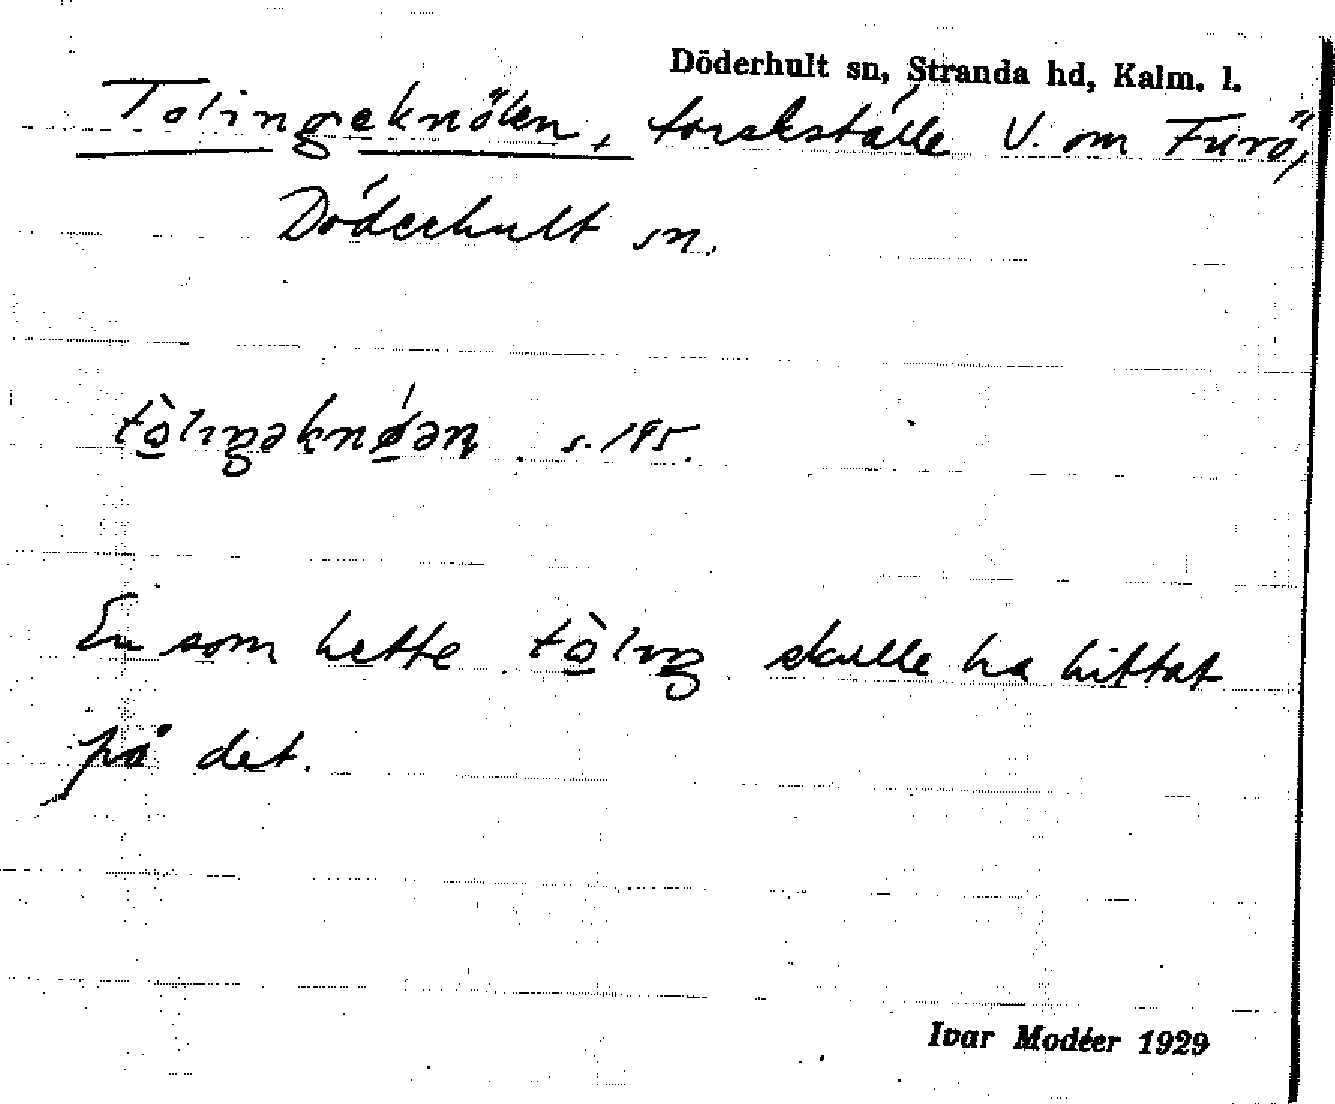 Döderhult sn, Stranda hd, Kalm. l.
Tolingeknölen, torskställe V. om Furö,
Döderhult sn.
s. 185.
En som hette tò̲lıŋ skulle ha hittat
på det.
Ivar Modéer 1929